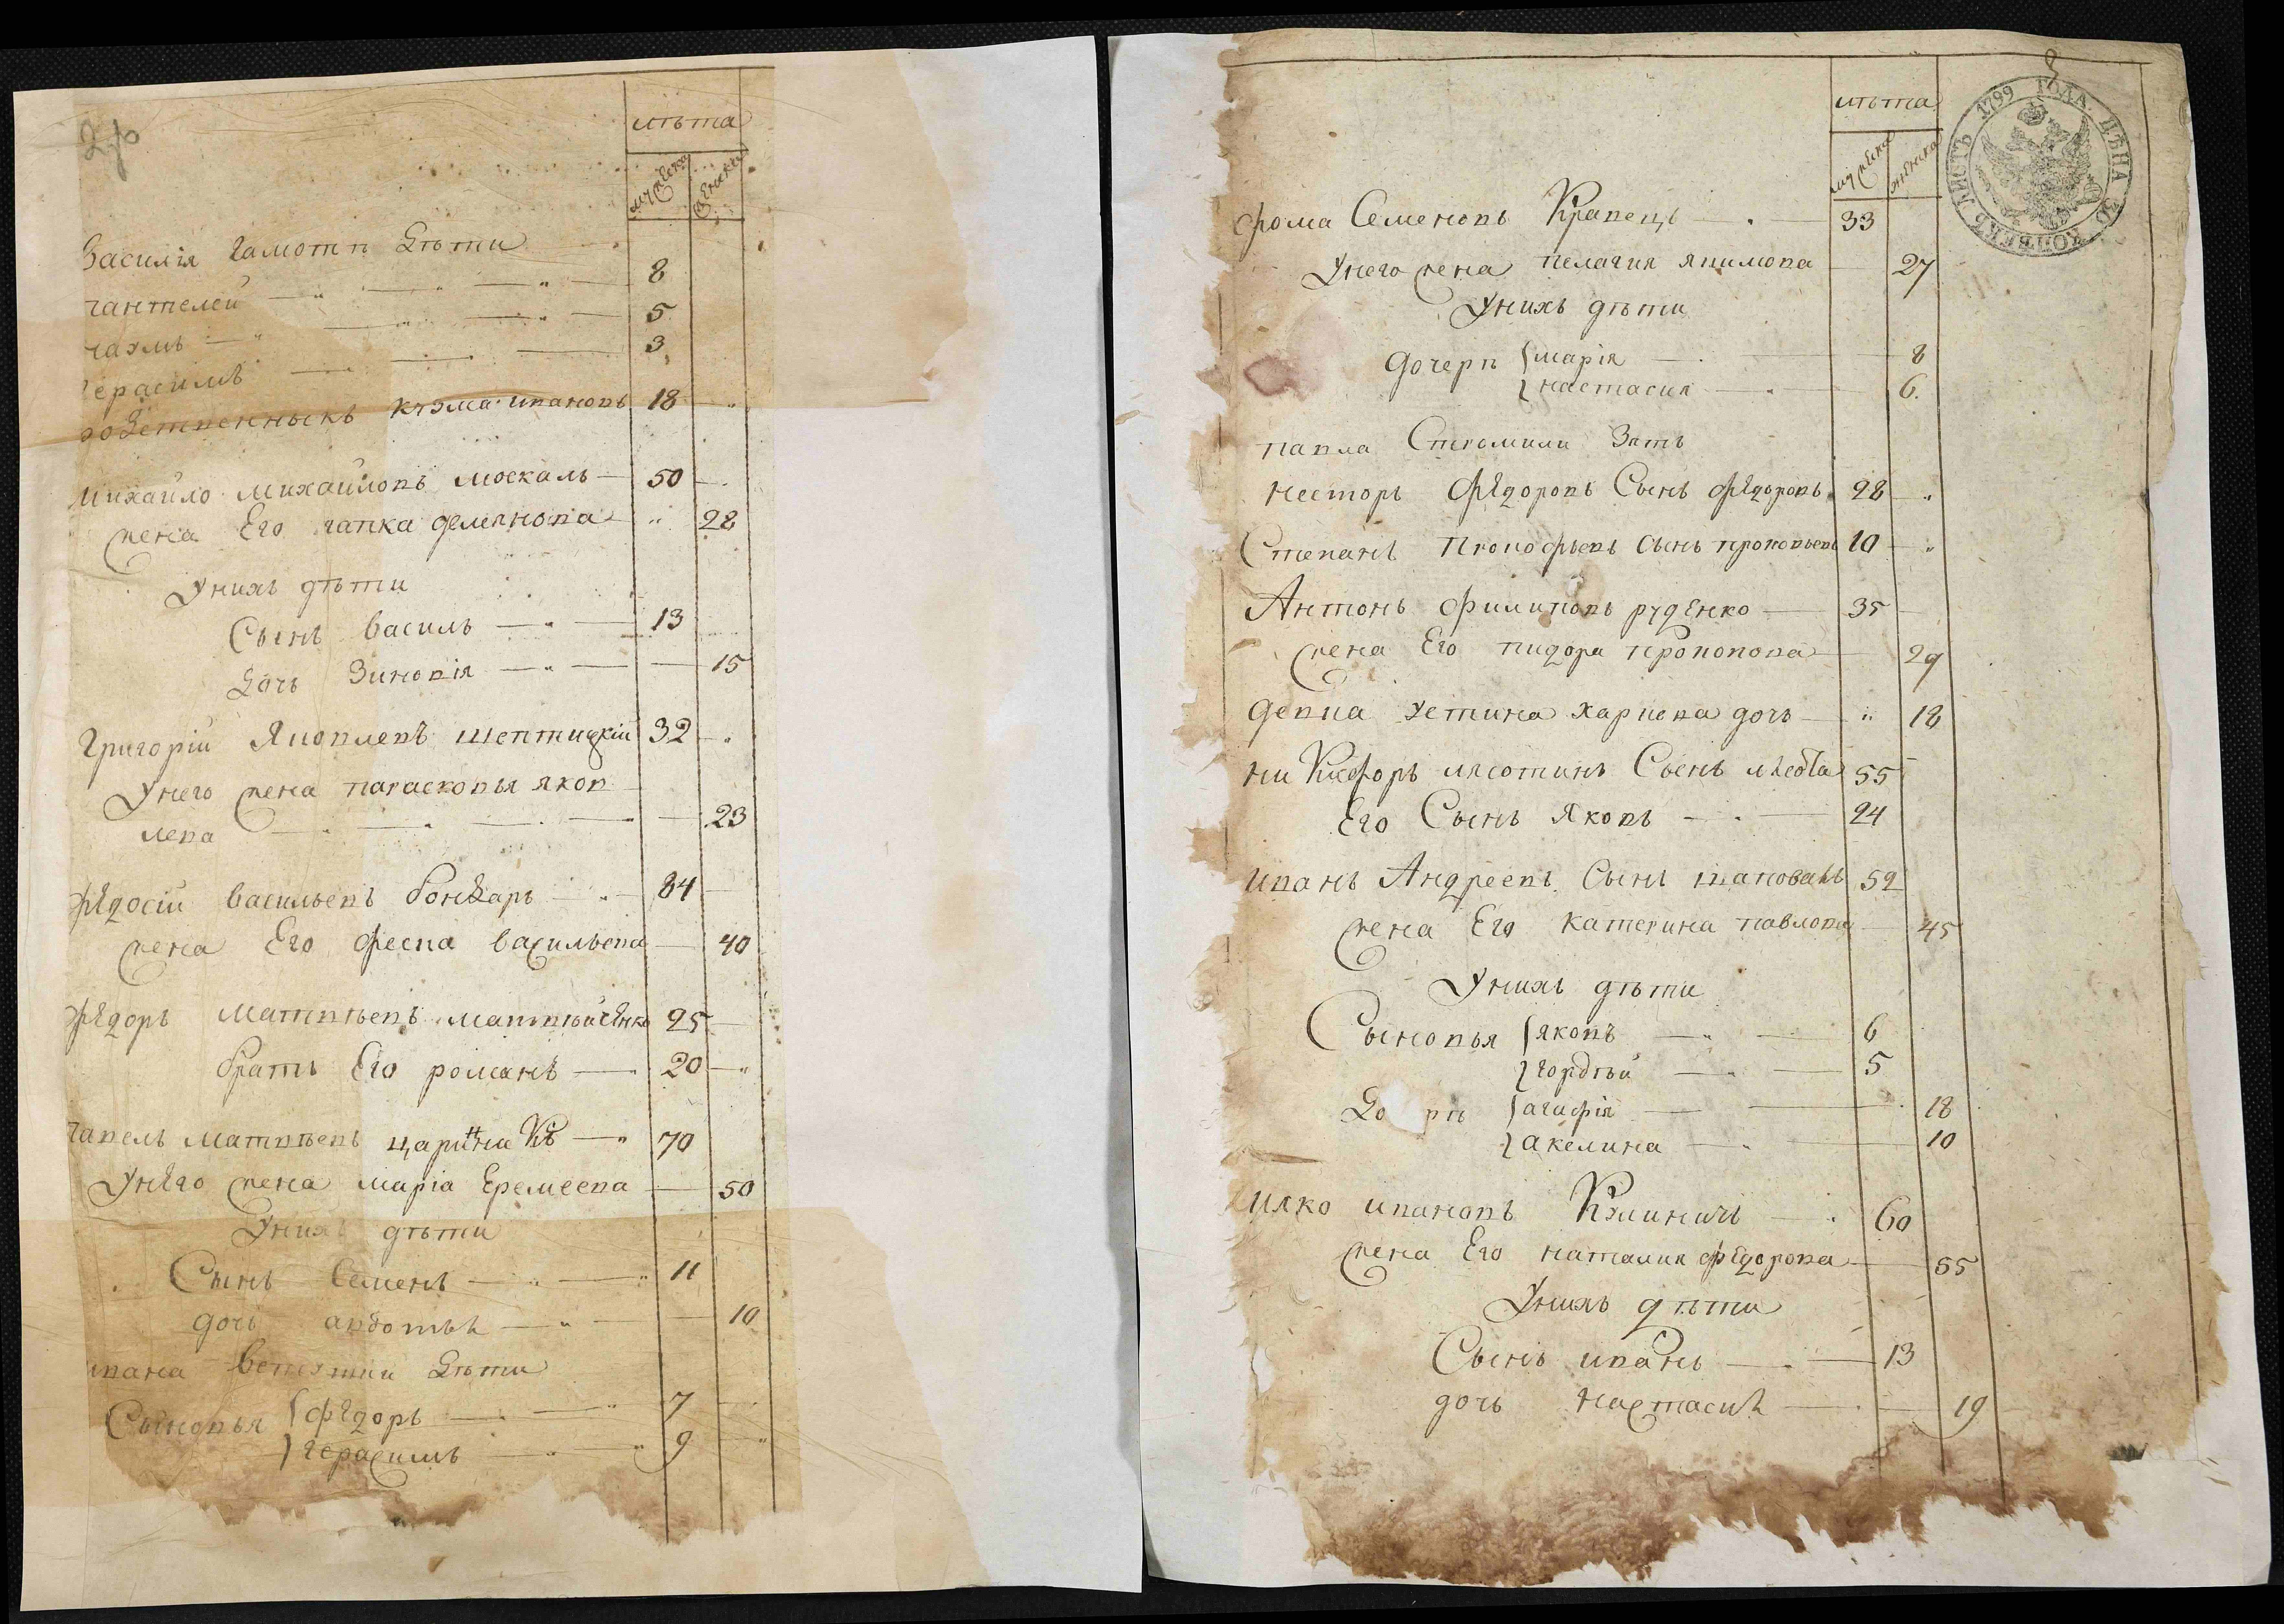 2р
лѣта
мужеска
женска
Василія Гамоти дѣти
Пантелей 8
Наумъ 5
Герасимъ 3
родственникъ Кузма Ивановъ 18
Михайло Михайловъ Москаль 50
жена Его гапка демянова 28
У нихъ дѣти
Сынъ Василь 13
Дочь Зиновія 15
Григорій Яковлевъ Шептицкій 32
У него жена Парасковья Яков
лева 23
Федосій Васильевъ бондарь 84
жена Его Февса Васильева 40
Федоръ Матвѣевъ Матвѣйенко 25
братъ Его романъ 20
Павелъ Матвѣевъ царинникъ 70
У него жена Марія Еремеева 50
У нихъ дѣти
Сынъ Семенъ 11
дочь авдотья 10
Ивана дѣти
Сыновья Федоръ 7
Герасимъ 9
3
1799 ГОДА. ЦѢНА 30 КОПѢЕКЪ ЛИСТЪ
лѣта
мужеска
женска
Фома Семеновъ Кравецъ 33
У него жена Пелагия Якимова 27
У нихъ дѣти
дочери Марія 8
Настасия 6.
Павла Зять
Несторъ Федоровъ Сынъ Федоровъ 28
Степанъ Прокофьевъ Сынъ Прокопьевъ 10
Антонъ Филиповъ руденко 35
жена Его пидора Прокопова 29
девка Устина Харкева дочь 18
Никифоръ Сынъ 55
Его Сынъ Яковъ 24
Иванъ Андреевъ Сынъ 52
жена Его Катерина Павлова 45
У нихъ дѣти
Сыновья Яковъ 6
Гордѣй 5
До ри агафія 18
акелина 10
Илко Ивановъ 60
жена Его Наталия Федорова 55
У нихъ дѣти
Сынъ Иванъ 13
дочь Настасия 19